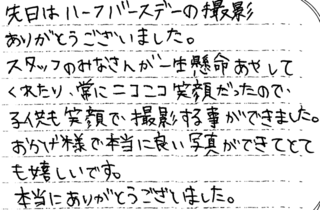 先日はハーフバースデーの撮影
ありがとうございました。
スタッフのみなさんが一生懸命あやして
くれたり、常にニコニコ笑顔だったので、
子供も笑顔で撮影する事ができました。
おかげ様で本当に良い写真ができてとて
も嬉しいです。
本当にありがとうございました。